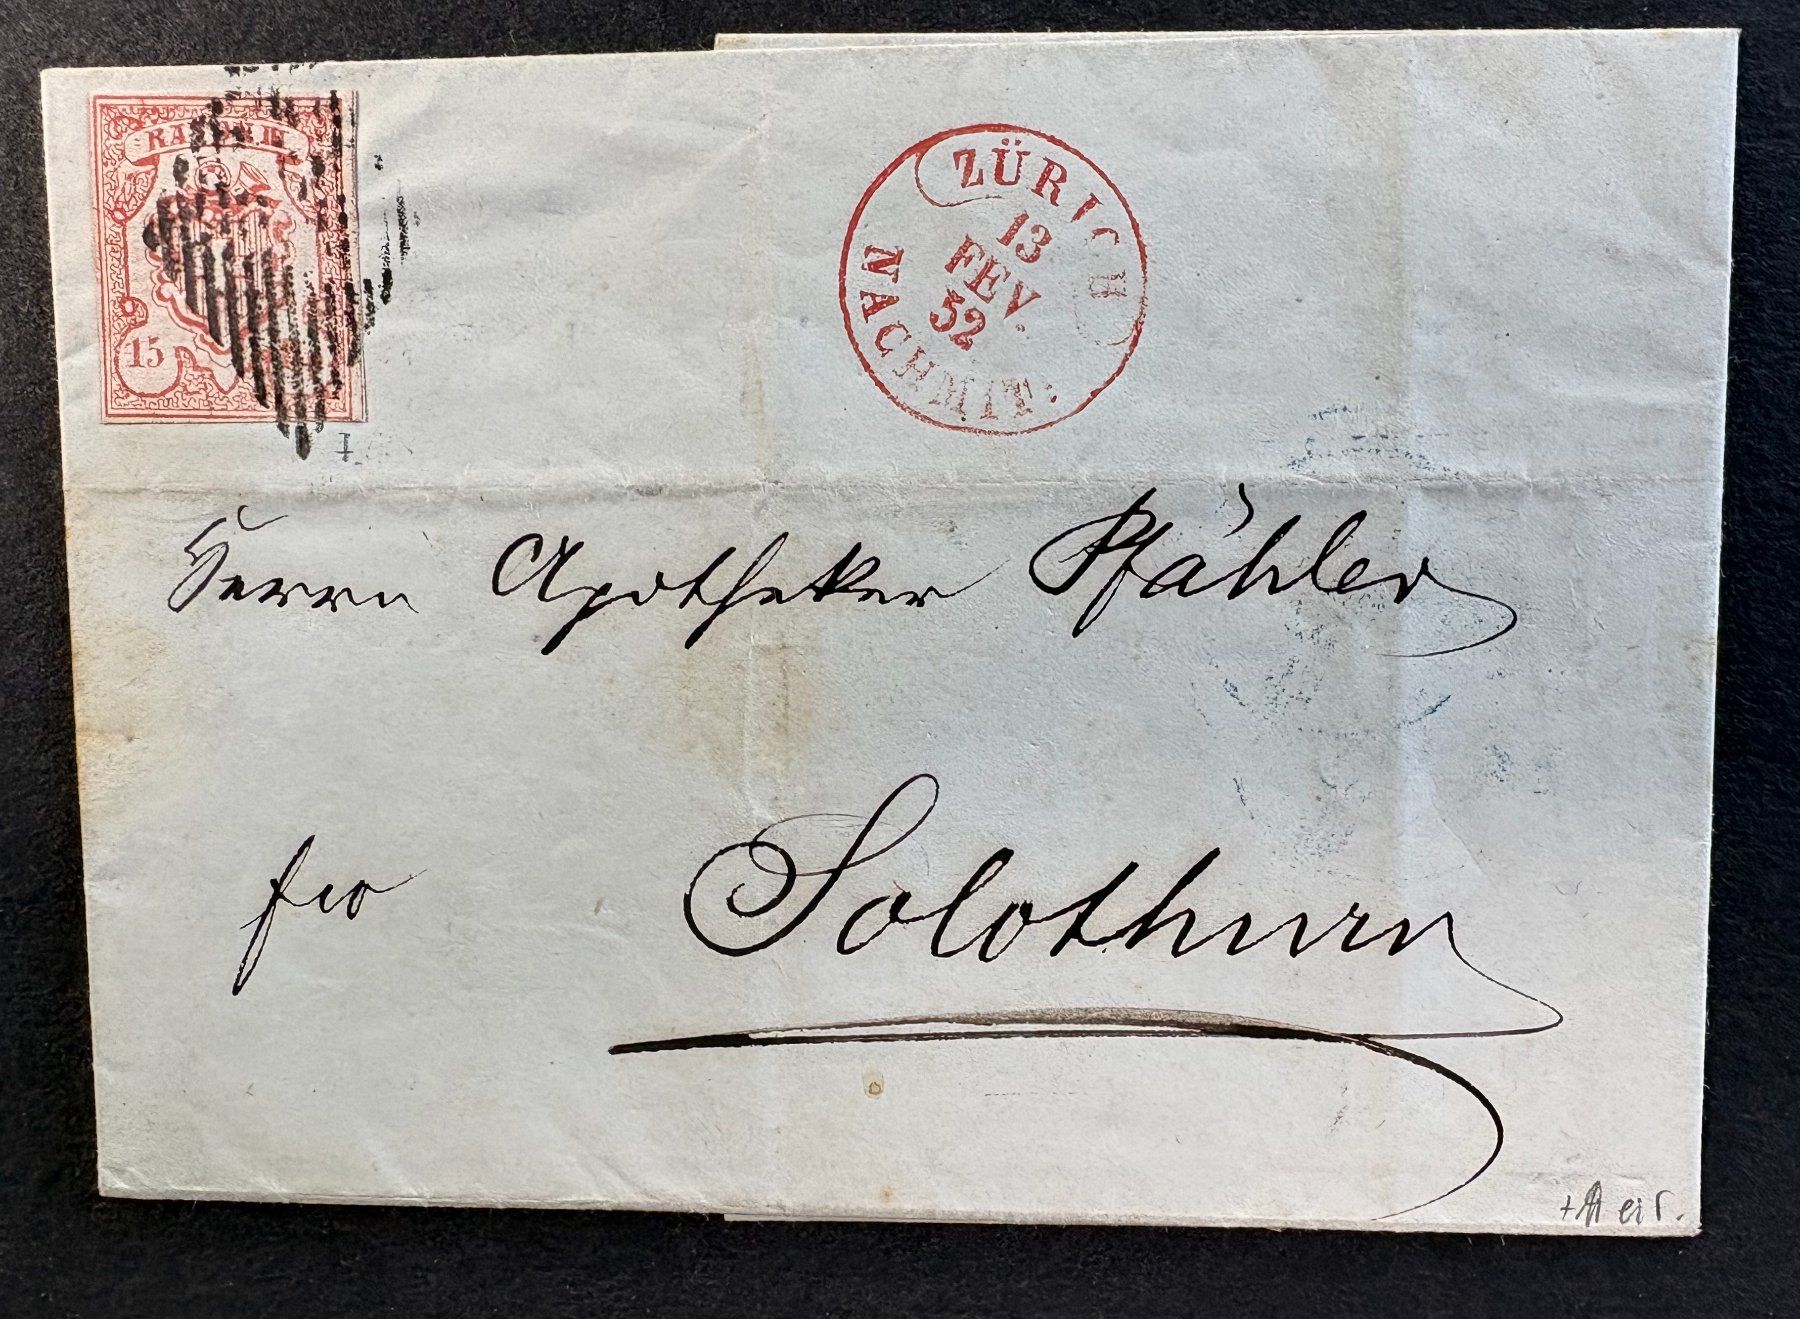 RAYON III
15
ZÜRICH
13
FEV.
52
NACHMIT:
Herrn Apotheker Pfähler
fco Solothurn